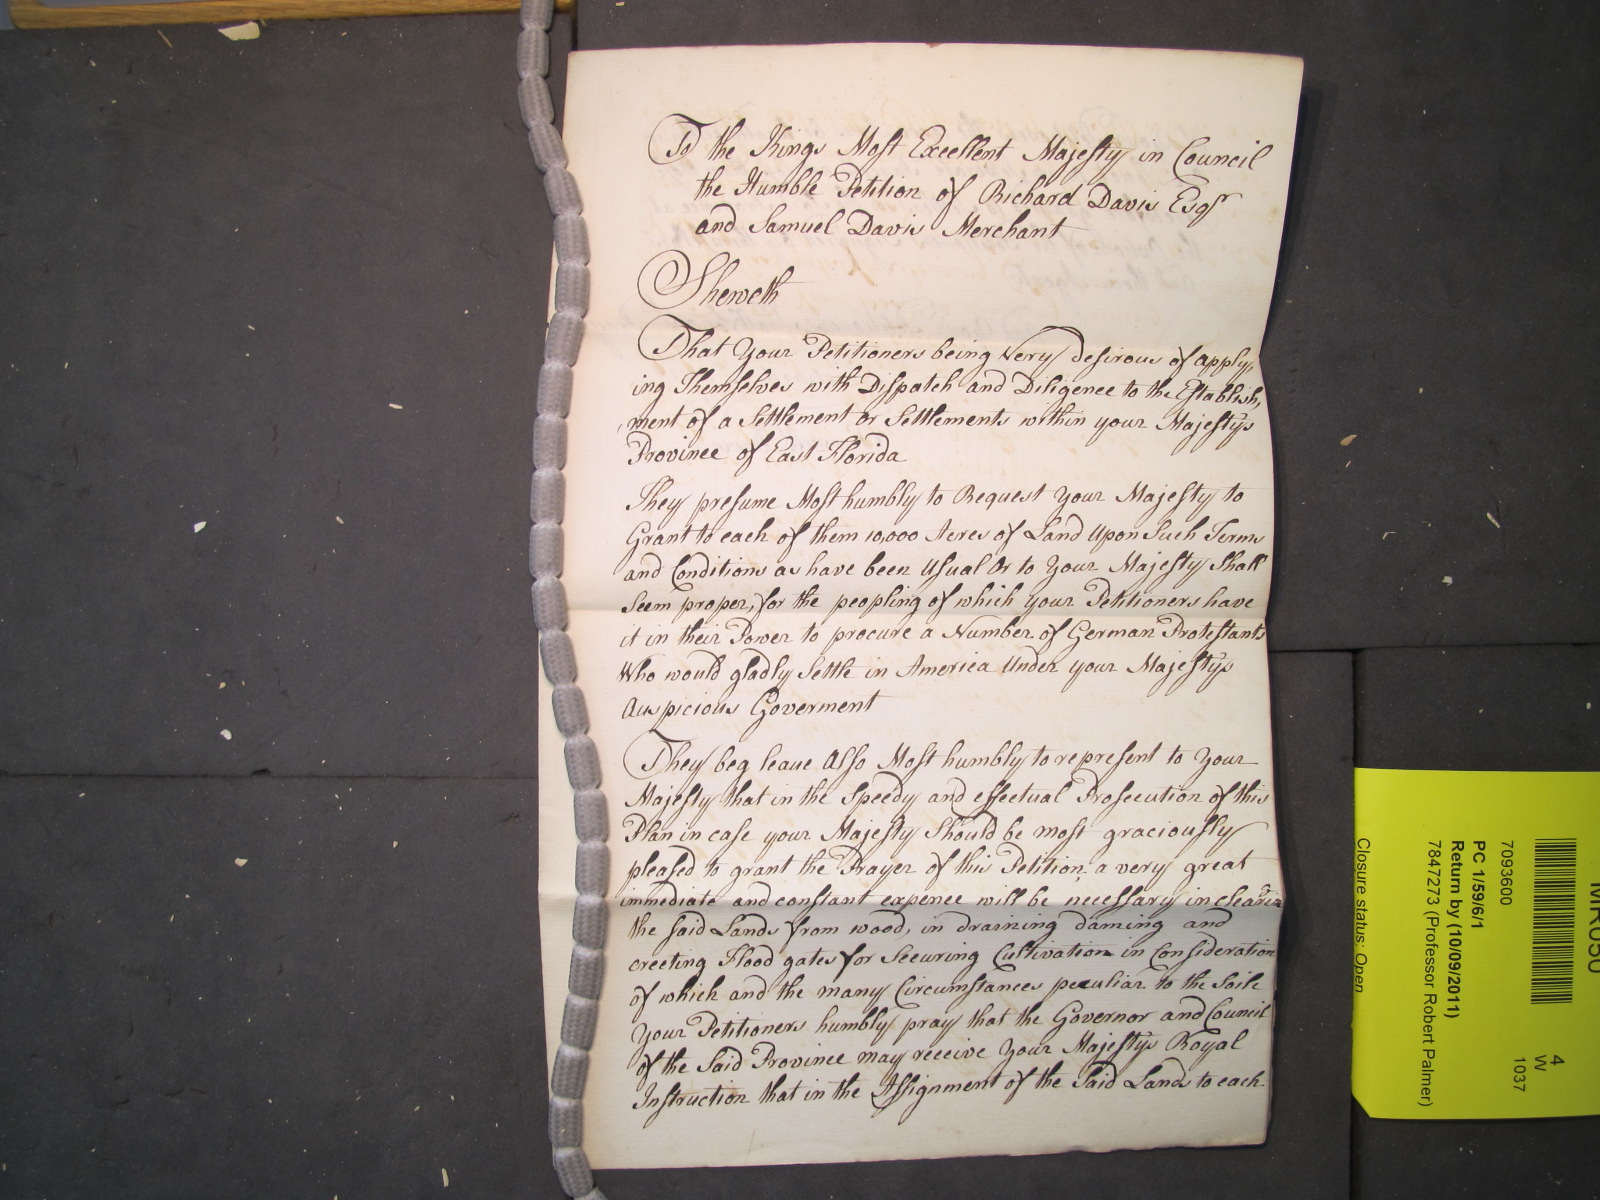 To the Kings Most Excellent Majesty in Council
the Humble Petition of Richard Davis Esqr
and Samuel Davis Merchant
Sheweth
That Your Petitioners being Very desirous of apply,
ing Themselves with Dispatch and Diligence to the Establish,
,ment of a Settlement or Settlements within your Majestys
Province of East Florida
They presume Most humbly to Request Your Majesty to
Grant to each of them 10,000 Acres of Land Upon Such Terms
and Conditions as have been Usual Or to Your Majesty Shall
Seem proper, for the peopling of which your Petitioners have
it in their Power to procure a Number of German Protestants
Who would gladly Settle in America Under your Majestys
Auspicious Goverment
They beg leave Also Most humbly to represent to Your
Majesty that in the Speedy and effectual Prosecution of this
Plan in case your Majesty Should be most graciously
pleased to grant the Prayer of this Petition, a very great
immediate and constant expence will be necessary in clearing
the said Lands from wood, in draining daming and
erecting Flood gates for Securing Cultivation in Consideration
of which and the many Circumstances peculiar to the Soile
Your Petitioners humbly pray that the Governor and Council
of the Said Province may receive Your Majestys Royal
Instruction that in the Assignment of the Said Lands to each
MR050
7093600
PC 1/59/6/1
Return by (10/09/2011)
7847273 (Professor Robert Palmer)
Closure status: Open
4
W
1037